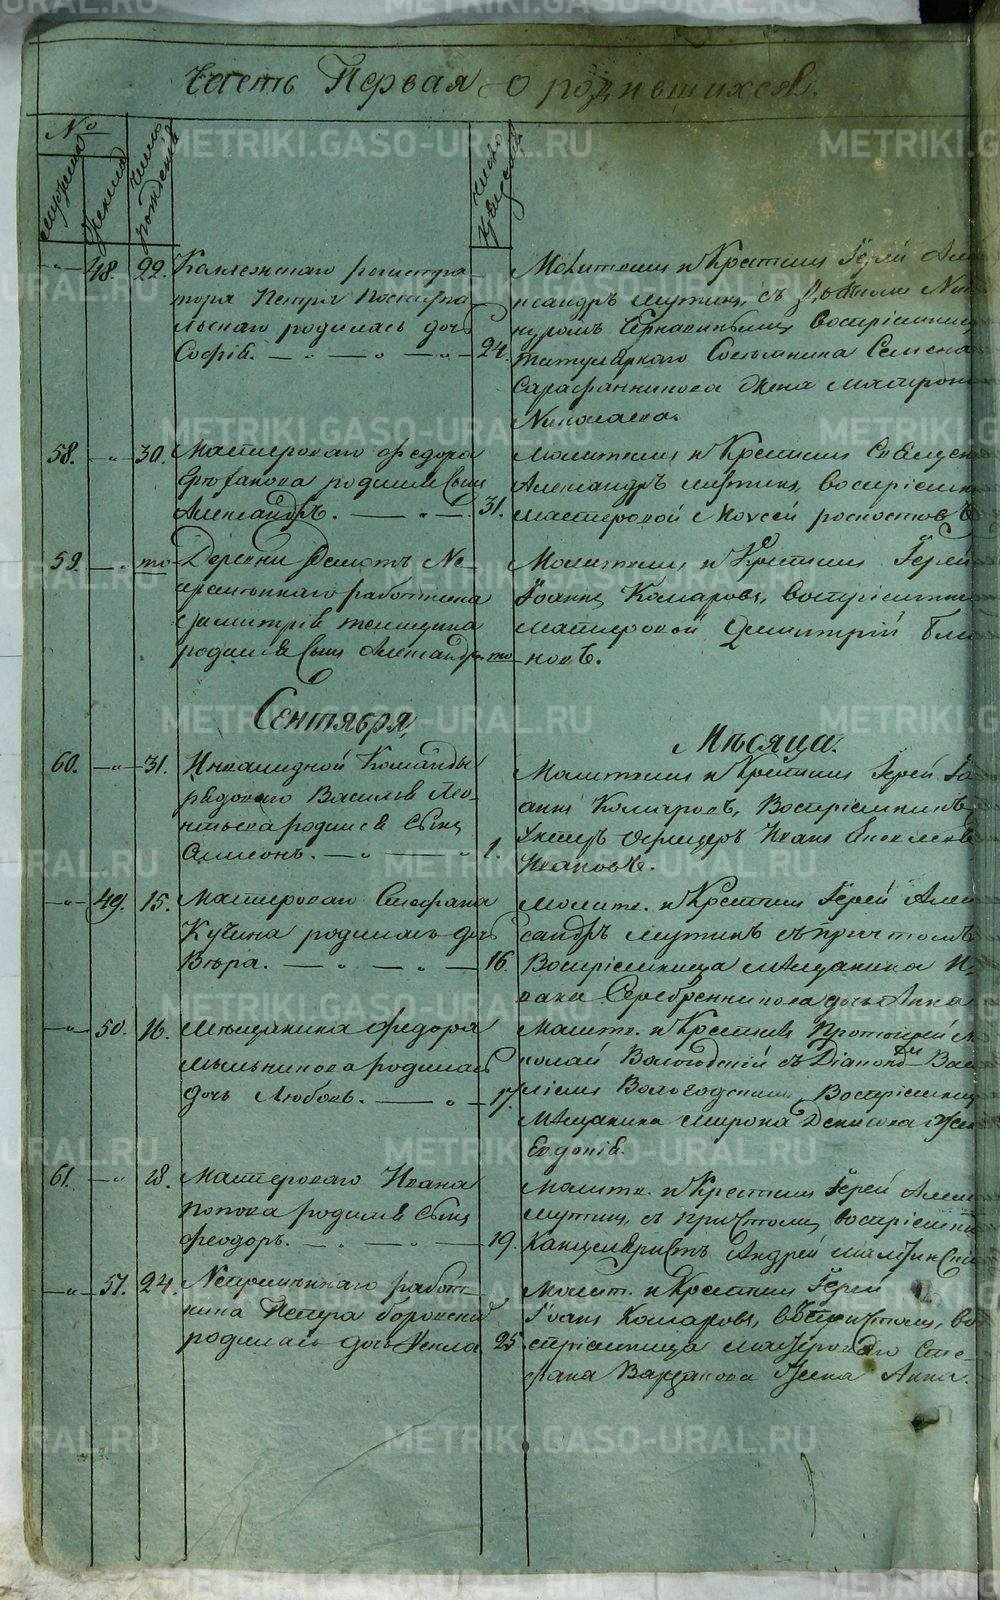 Часть Первая О родившихся.
№
мужеска
женска
число рожденія
число крещенія
48. 22. Коллежскаго регистра
тора Петра
родилась дочь
Софія. 24.
Молитвилъ и Крестилъ Іерей Але
ксандръ Мутинъ, съ
Воспріемница
титулярнаго Совѣтника Семена
Сарафанникова жена Матрона
Николаева.
58. 30. Мастероваго Федора
родился сынъ
Александръ. 31.
Молитвилъ и Крестилъ Священ
Александръ Мутинъ, воспріемникъ
мастеровой Моисей
59. то Деревни Не
премѣннаго работника
Димитрія
родился сынъ Александръ то
Молитвилъ и Крестилъ Іерей
Іоаннъ Комаровъ, Воспріемникъ
мастеровой Димитрій Бли
новъ.
Сентября
Мѣсяца.
60. 31. Инвалидной Команды
рядоваго Василья Лео
нтьева родился сынъ
Симеонъ. 1.
Молитвилъ и Крестилъ Іерей Іо
аннъ Комаровъ, Воспріемникъ
Унтеръ Офицеръ Иванъ
Ивановъ.
49. 15. Мастероваго Стефана
Кучина родилась дочь
Вѣра. 16.
Молитв. и Крестилъ Іерей Але
сандръ Мутинъ съ причтомъ
Воспріемница мѣщанина И
вана Серебренникова дочь Анна
50. 16. Мѣщанина Федора
Мыльникова родилась
дочь Любовь. 17.
Молитв. и Крестилъ Протоіерей Ни
колай Вологодскій съ Діакономъ Васи
ліемъ Вологодскимъ, Воспріемница
Мѣщанина Мирона Денисова жена
Евдокія.
61. 18. Мастероваго Ивана
Попова родился сынъ
Феодоръ. 19.
Молитв. и Крестилъ Іерей Алек
Мутинъ, съ причтомъ, воспріемникъ
Канцеляристъ Андрей
51. 24. Непремѣннаго работ
ника Петра
родилась дочь Фекла. 25.
Молит. и Крестилъ Іерей
Іоаннъ Комаровъ, съ причтомъ, во
спріемница мастероваго Сте
фана Варзакова жена Анна.
METRIKI.GASO-URAL.RU